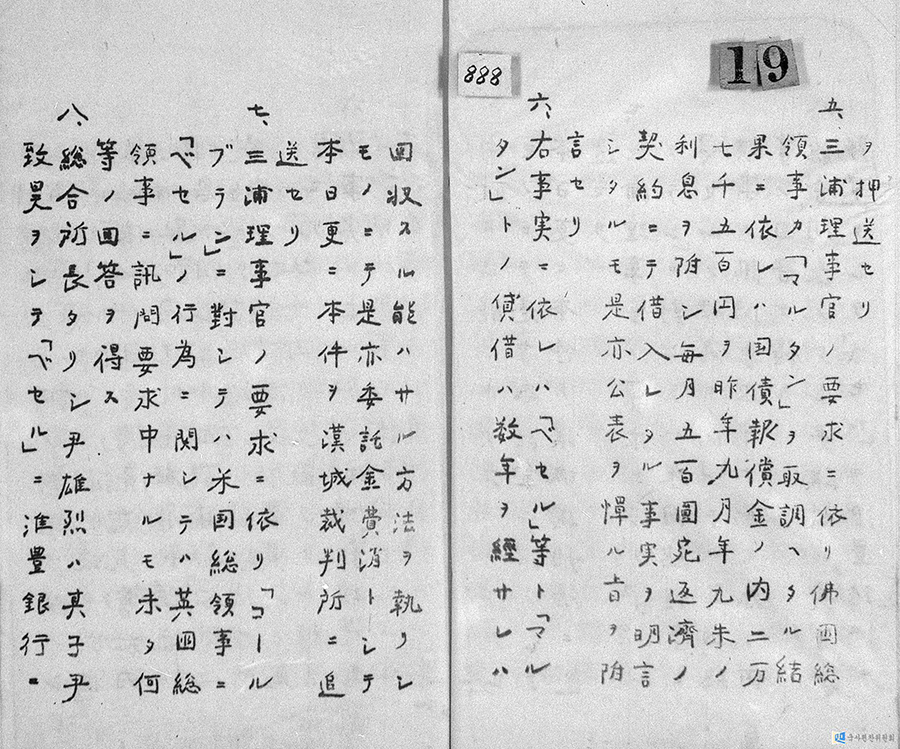 19
888
ヲ押送セリ
五、三浦理事官ノ要求ニ依リ佛国総
領事カ「マルタン」ヲ取調ヘタル結
果ニ依レハ国債報償金ノ内二万
七千五百円ヲ昨年九月年九朱ノ
利息ヲ附シ毎月五百圓宛返濟ノ
契約ニテ借入レタル事実ヲ明言
シタルモ是亦公表ヲ憚ル旨ヲ附
言セリ
六、右事実ニ依レハ「ベセル」等ト「マル
タン」ト貸借ハ数年ヲ經サレハ
回収スル能ハサル方法ヲ執リシ
モノニテ是亦委託金費消トシテ
本日更ニ本件ヲ漢城裁判所ニ追
送セリ
七、三浦理事官ノ要求ニ依リ「コール
ブラン」ニ對シテハ米国総領事ニ
「ベセル」ノ行為ニ関シテハ英国総
領事ニ訊問要求中ナルモ未タ何
等ノ回答ヲ得ス
八、総合所長タリシ尹雄烈ハ其子尹
致昊ヲシテ「ベセル」ニ淮豊銀行ニ
국사편찬위원회